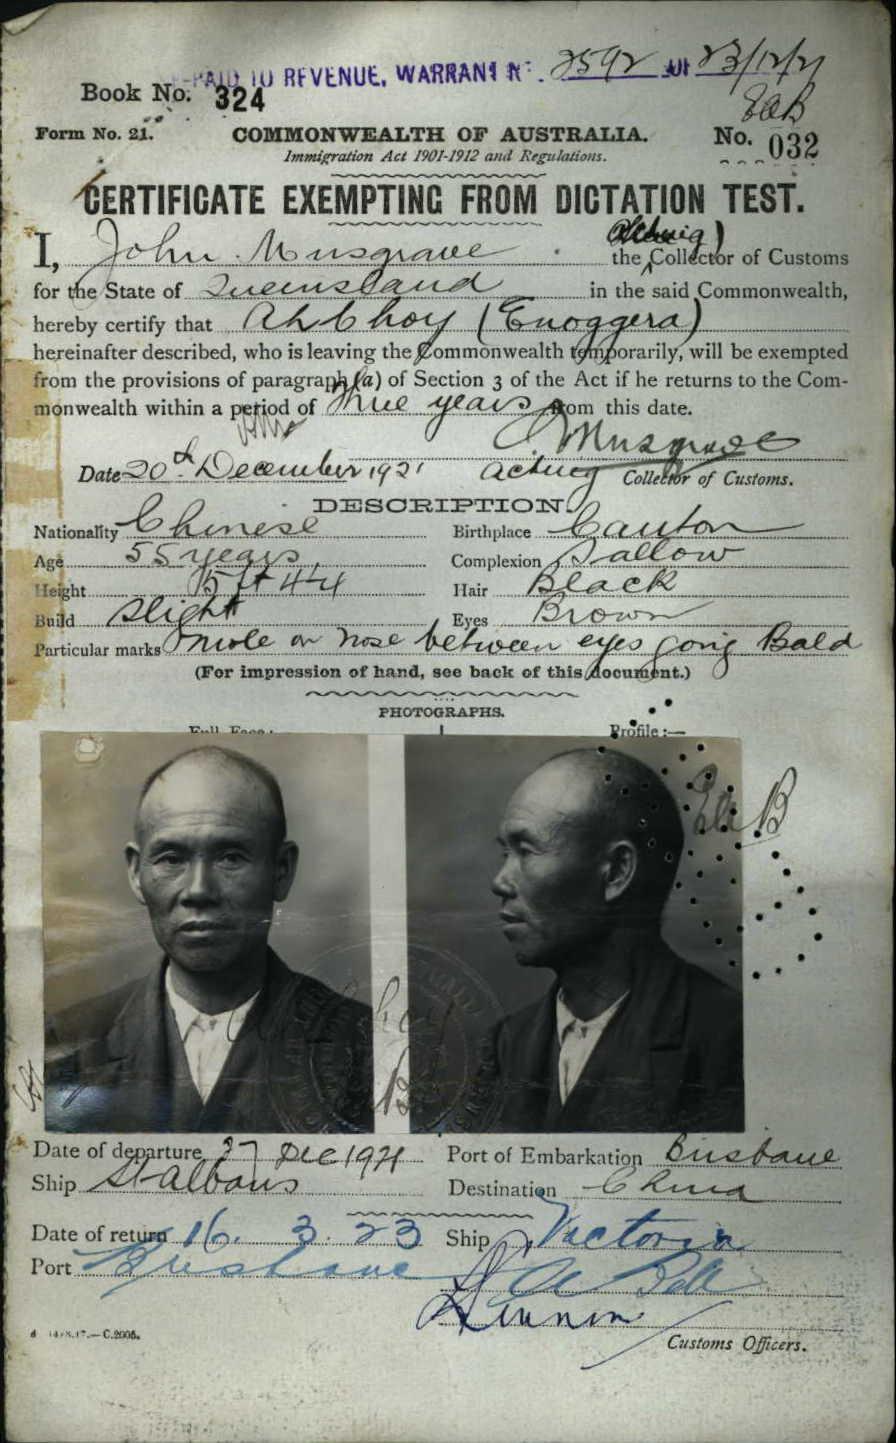 PAID TO REVENUE, WARRANT No. 2592 OF 23/12/21
Book No. 324
Form No. 21. COMMONWEALTH OF AUSTRALIA. No. 032
Immigration Act 1901-1912 and Regulations.
CERTIFICATE EXEMPTING FROM DICTATION TEST.
I, John Musgrave (Acting) the Collector of Customs
for the State of Queensland in the said Commonwealth,
hereby certify that Ah Choy (Enoggera)
hereinafter described, who is leaving the Commonwealth temporarily, will be exempted
from the provisions of paragraph (a) of Section 3 of the Act if he returns to the Com-
monwealth within a period of three years from this date.
Musgrave
Date 20th December 1921 Acting Collector of Customs.
DESCRIPTION.
Nationality Chinese Birthplace Canton
Age 55 years Complexion Sallow
Height 5 ft 4¼ Hair Black
Build Slight Eyes Brown
Particular marks Mole on nose between eyes going Bald
(For impression of hand, see back of this document.)
PHOTOGRAPHS.
Full Face:— Profile:—
Date of departure 27 Dec 1921 Port of Embarkation Brisbane
Ship St Albans Destination China
Date of return 16. 3. 23 Ship Victoria
Port Brisbane
Customs Officers.
C.2005.